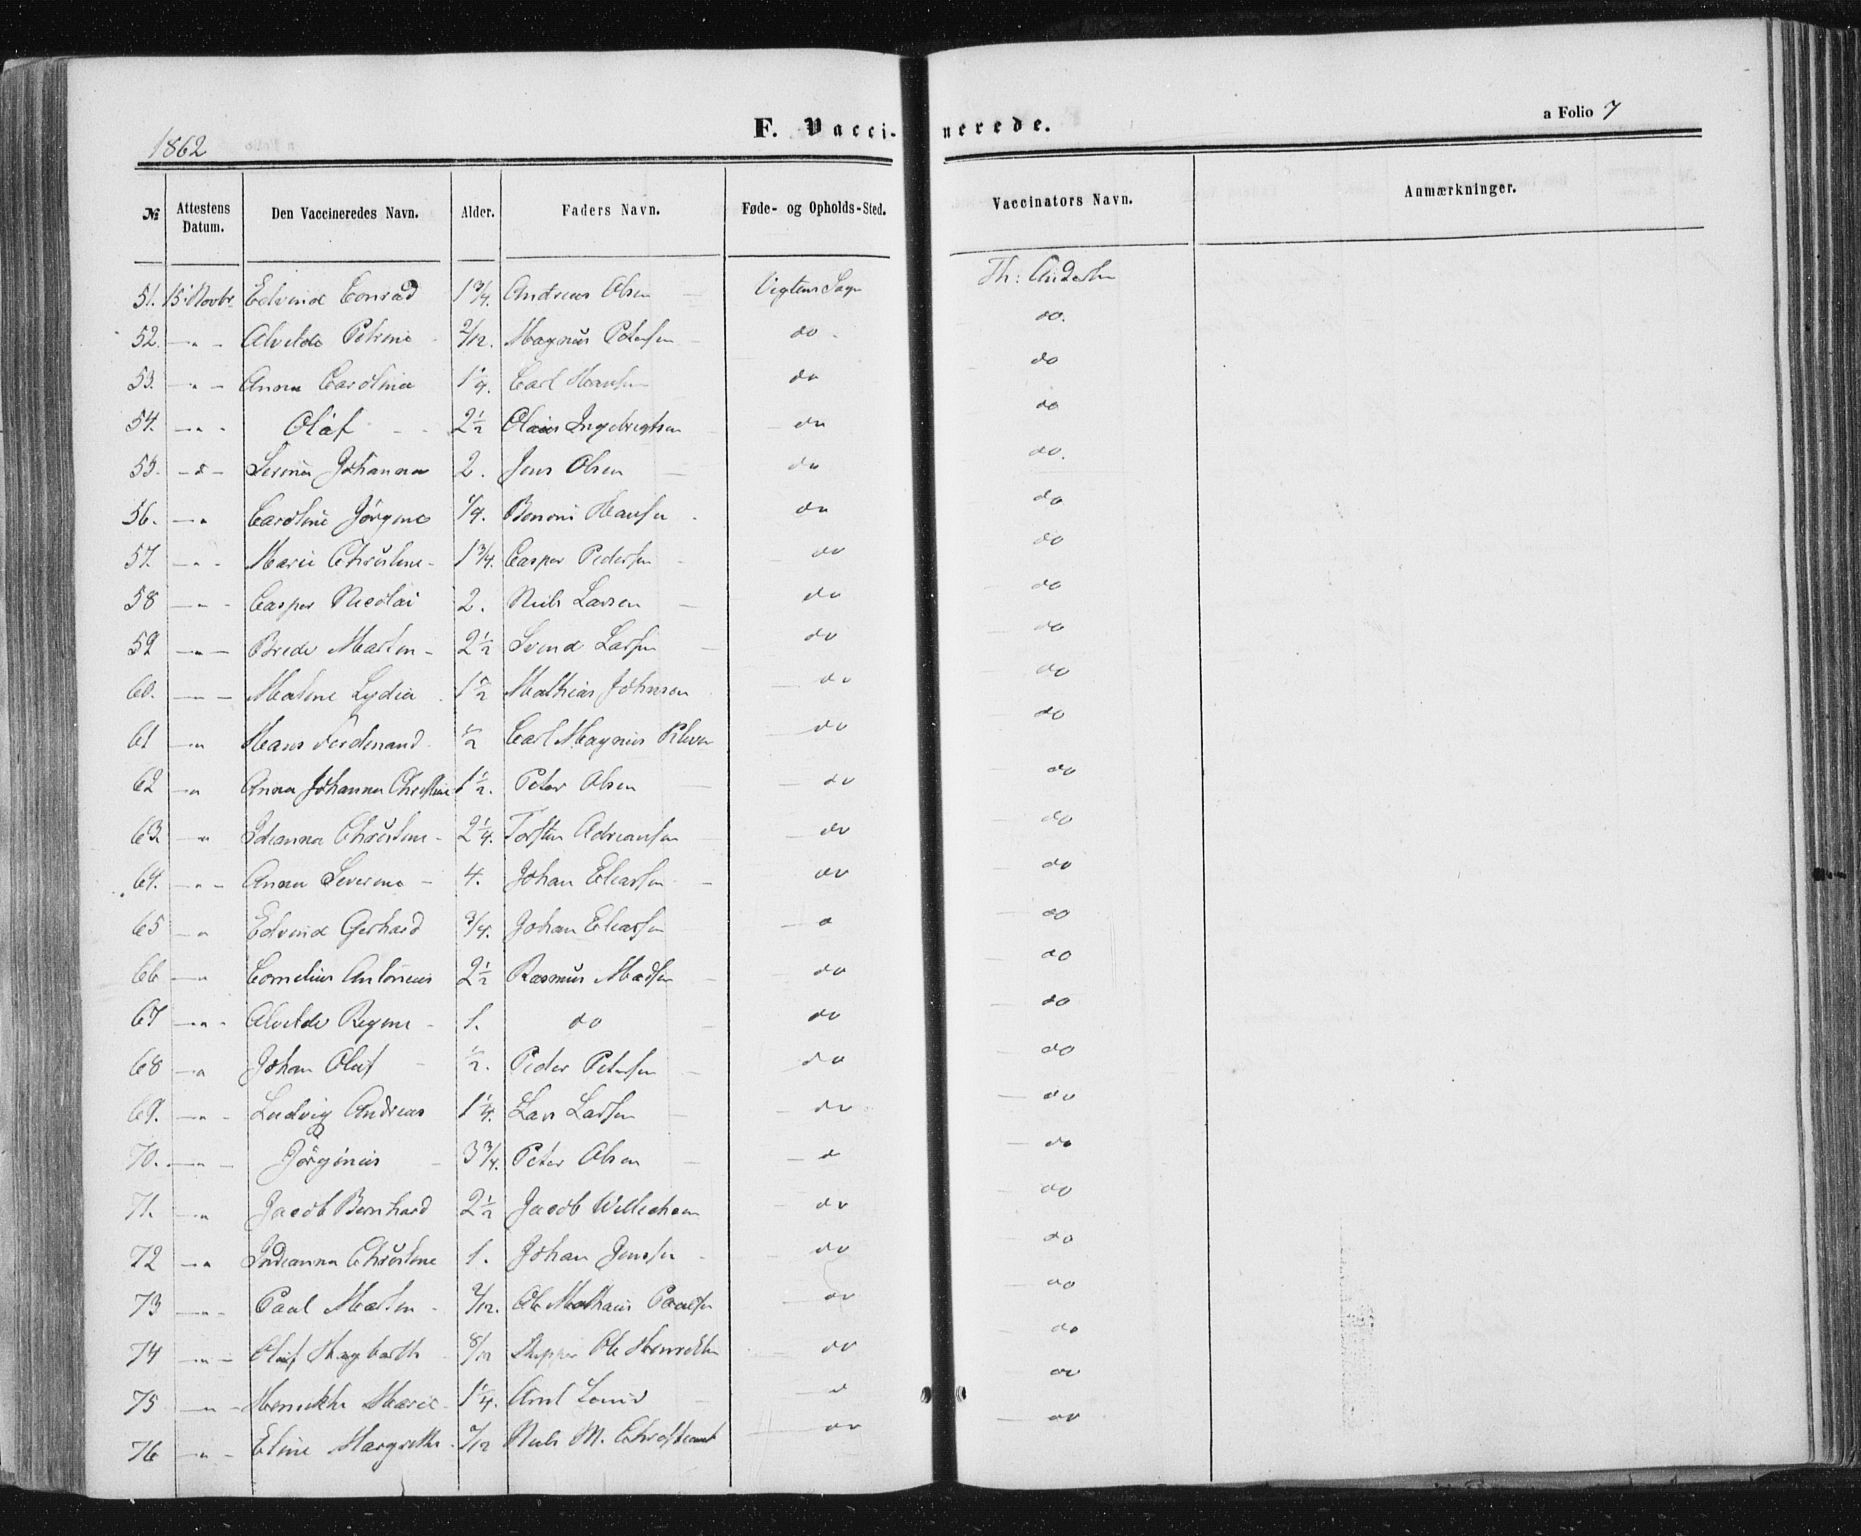 1862
F. Vaccinerede.
a Folio 7
№ Attestens Datum. Den Vaccineredes Navn. Alder. Faders Navn. Føde- og Opholds-Sted. Vaccinators Navn. Anmærkninger.
51. 15 Novbr. Edvind Conrad 1 3/4. Andreas Olsen Vigtens Sogn Th: Andersen
52. -"- Alvilde Petrine 2/12. Magnus Petersen do do.
53. -"- Anna Carolina 1 1/4. Carl Hansen do do
54. -"- Olaf 2 1/2 Olaus Ingebrigtsen do do
55. -"- Serina Johanna 2. Jens Olsen do do.
56. -" Caroline Jørgine 1/4. Benoni Hansen do do
57. -"- Marie Christine 1 3/4. Casper Pedersen do do
58 -"- Casper Nicolai 2. Niels Larsen do do
59 -"- Brede Martin 2 1/2 Svend Larsen do do
60. -"- Malene Lydia 1 1/2 Mathias Johnson do do
61 -" Hans Ferdinand 1/2 Carl Magnus do do
62 -" Anna Johanna Christine 1 1/2. Peter Olsen do do
63. -" Idianna Christine 2 1/4. Torsten Adriansen do do
64. -"- Anna Severine 4. Johan Eliassen do do
65 -" Edvind Gerhard 3/4. Johan Eliassen do do
66 -" Cornelius Antonius 2 1/2 Rasmus Madsen do do
67 -"- Alvilde Regine 1. do do do
68 -" Johan Oluf 1/2. Peder Petersen do do
69. -"- Ludvig Andreas 1 1/4. Lars Larsen do do
70. -"- Jørginius 3 3/4. Peter Olsen do do
71. -" Jacob Bernhard 2 1/2 Jacob do do
72 -" Indianna Christine 1. Johan Jensen do do
73 -"- Paul Martin 2/12. Ole Mathias Paulsen do do
74 -"- Oluf Hagbarth 8/12 Skipper Ole Henriksen do do
75 -"- Henrikke Marie 1 1/4. do do
76 -"- Eline Margrethe 7/12 Niels M. do do